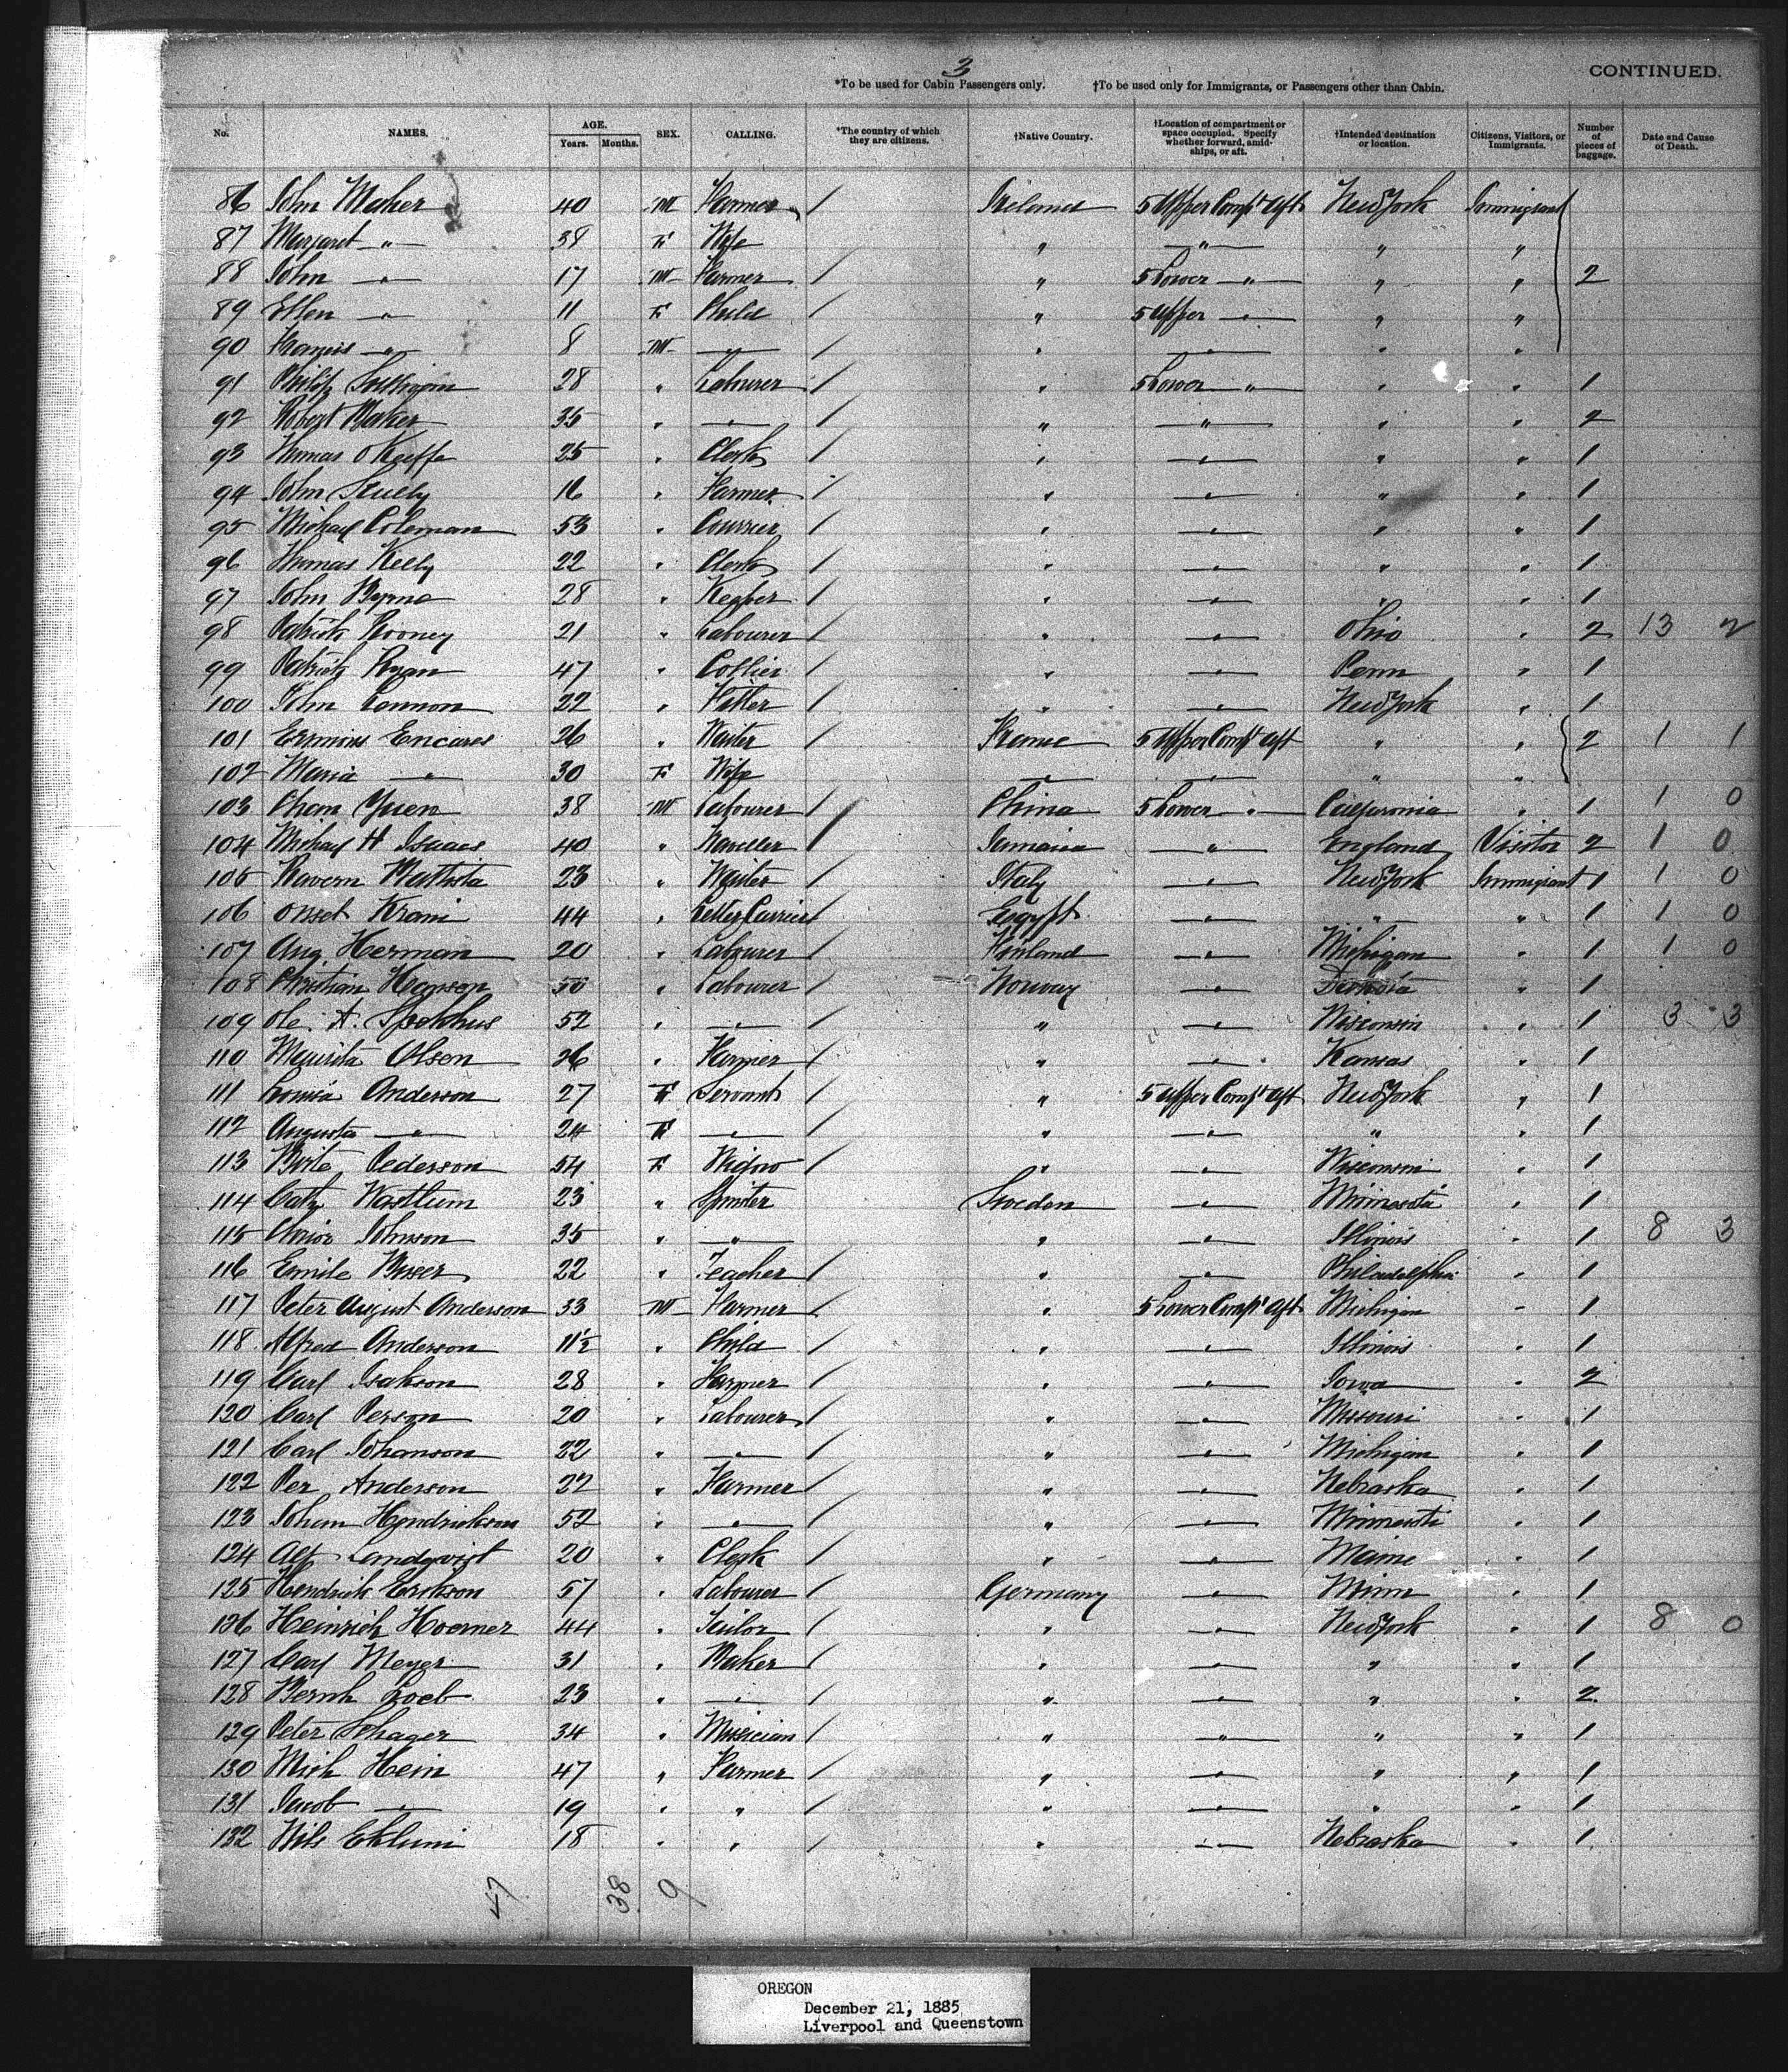 3
*To be used for Cabin Passengers only. †To be used only for Immigrants, or Passengers other than Cabin. CONTINUED.
No. NAMES. AGE. Years. Months. SEX. CALLING. *The country of which they are citizens. †Native Country. †Location of compartment or space occupied. Specify whether forward, amidships, or aft. †Intended destination or location. Citizens, Visitors, or Immigrants. Number of pieces of baggage. Date and Cause of Death.
86 John Maher 40 M Farmer / Ireland 5 Upper Compt Aft New York Immigrant
87 Margaret " 38 F Wife " " " "
88 John " 17 M Farmer / " 5 Lower " " " 2
89 Ellen " 11 F Child / " 5 Upper " " "
90 Francis " 8 M " / " " " "
91 Philip Sullivan 28 " Labourer / " 5 Lower " " " 1
92 Robert Maher 35 " " / " " " " 2
93 Thomas O'Keeffe 25 " Clerk / " " " " 1
94 John Scully 16 " Farmer / " " " " 1
95 Michael Coleman 53 " Courrier / " " " " 1
96 Thomas Kelly 22 " Clerk / " " " " 1
97 John Byrne 28 " Keeper / " " " " 1
98 Patrick Rooney 21 " Labourer / " " Ohio " 2 13 2
99 Patrick Ryan 47 " Collier / " " Penn " 1
100 John Lennon 22 " Fitter / " " New York " 1
101 Encares 26 " Waiter / France 5 Upper Compt Aft " " 2 1 1
102 Maria " 30 F Wife " " " "
103 Chan Yuen 38 M Labourer / China 5 Lower " California " 1 1 0
104 Michael H Isaacs 40 " Traveller / Jamaica " England Visitor 2 1 0
105 Battista 23 " Waiter / Italy " New York Immigrant 1 1 0
106 Krani 44 " Letter Carrier / Egypt " " " 1 1 0
107 Aug. Herman 20 " Labourer / Finland " Michigan " 1 1 0
108 Christian Hanson 50 " Labourer / Norway " Dakota " 1
109 Ole A. 52 " " / " " Wisconsin " 1 3 3
110 Olsen 26 " Farmer / " " Kansas " 1
111 Louisa Anderson 27 F Servant / " 5 Upper Compt Aft New York " 1
112 Augusta " 24 F " / " " " " 1
113 Pederson 54 F Widow / " " Wisconsin " 1
114 Cath. 23 " Spinster Sweden " Minnesota " 1
115 Johnson 35 " " " " Illinois " 1 8 3
116 Emile 22 " Teacher / " " Philadelphia " 1
117 Peter August Anderson 33 M Farmer / " 5 Lower Compt Aft Michigan " 1
118 Alfred Anderson 11½ " Child / " " Illinois " 1
119 Carl Isakson 28 " Farmer / " " Iowa " 2
120 Carl Person 20 " Labourer / " " Missouri " 1
121 Carl Johanson 22 " " / " " Michigan " 1
122 Per Anderson 22 " Farmer / " " Nebraska " 1
123 Johan Hendrickson 52 " " / " " " 1
124 Alf Lindqvist 20 " Clerk / " " Maine " 1
125 Hendrick Erikson 57 " Labourer / Germany " Minn " 1
126 Heinrich Hoerner 44 " Tailor / " " New York " 1 8 0
127 Carl Meyer 31 " Baker / " " " " 1
128 Bernh Loeb 23 " " / " " " " 2
129 Peter Schager 34 " Musician / " " " " 1
130 Mich Hein 47 " Farmer / " " " " 1
131 Jacob " 19 " " / " " " " 1
132 Nils 18 " " / " " Nebraska " 1
47 38 9
OREGON
December 21, 1885
Liverpool and Queenstown